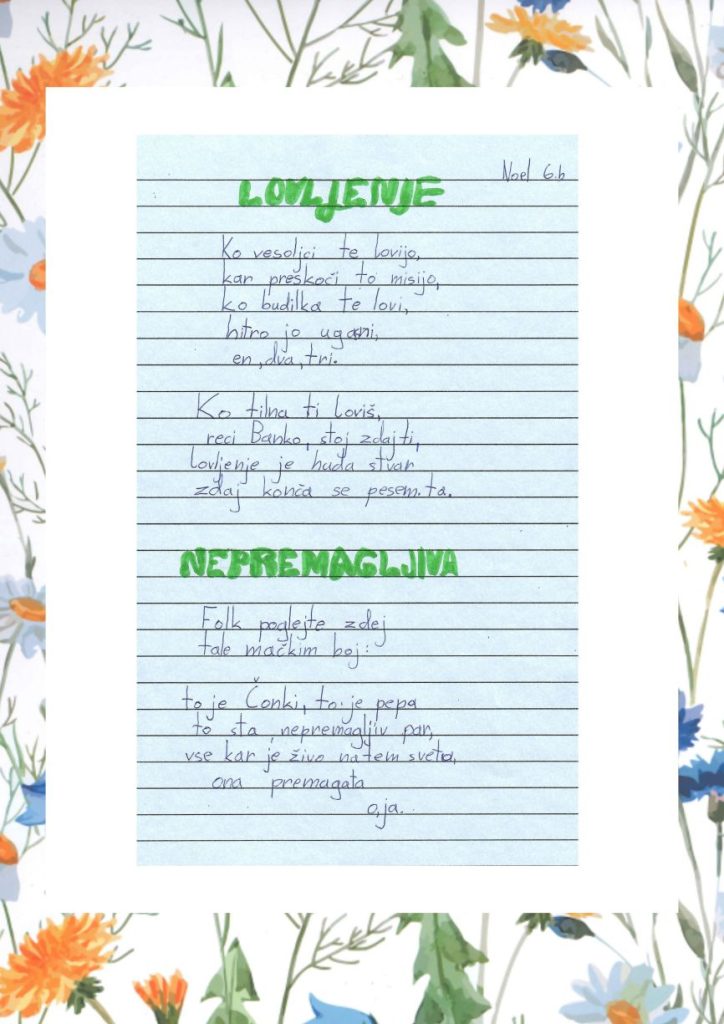 Noel 6.b
LOVLJENJE
Ko vesoljci te lovijo,
kar preškoči to misijo,
ko budilka te lovi,
hitro jo ugani,
en, dva, tri.
Ko tilna ti loviš,
reci Banko, stoj zdaj ti,
lovljenje je huda stvar
zdaj konča se pesem.ta.
NEPREMAGLJIVA
Folk poglejte zdej
tale mačkim boj:
to je Čonki, to je pepa
to sta, nepremagljiv par,
vse kar je živo na tem sveta,
ona premagata
o,ja.